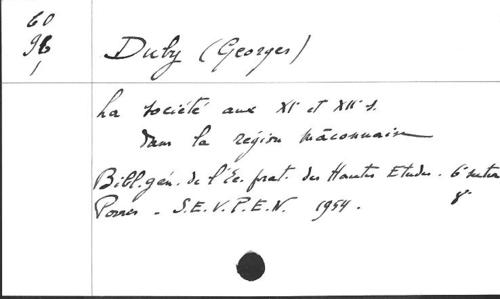 60
96
1
Duby (Georges)
La société aux XIe et XIIe s.
dans la région mâconnaise
Bibl. gén. de l'Ec. prat. des Hautes Etudes - 6e section
Paris - S.E.V.P.E.N. 1954.
8°